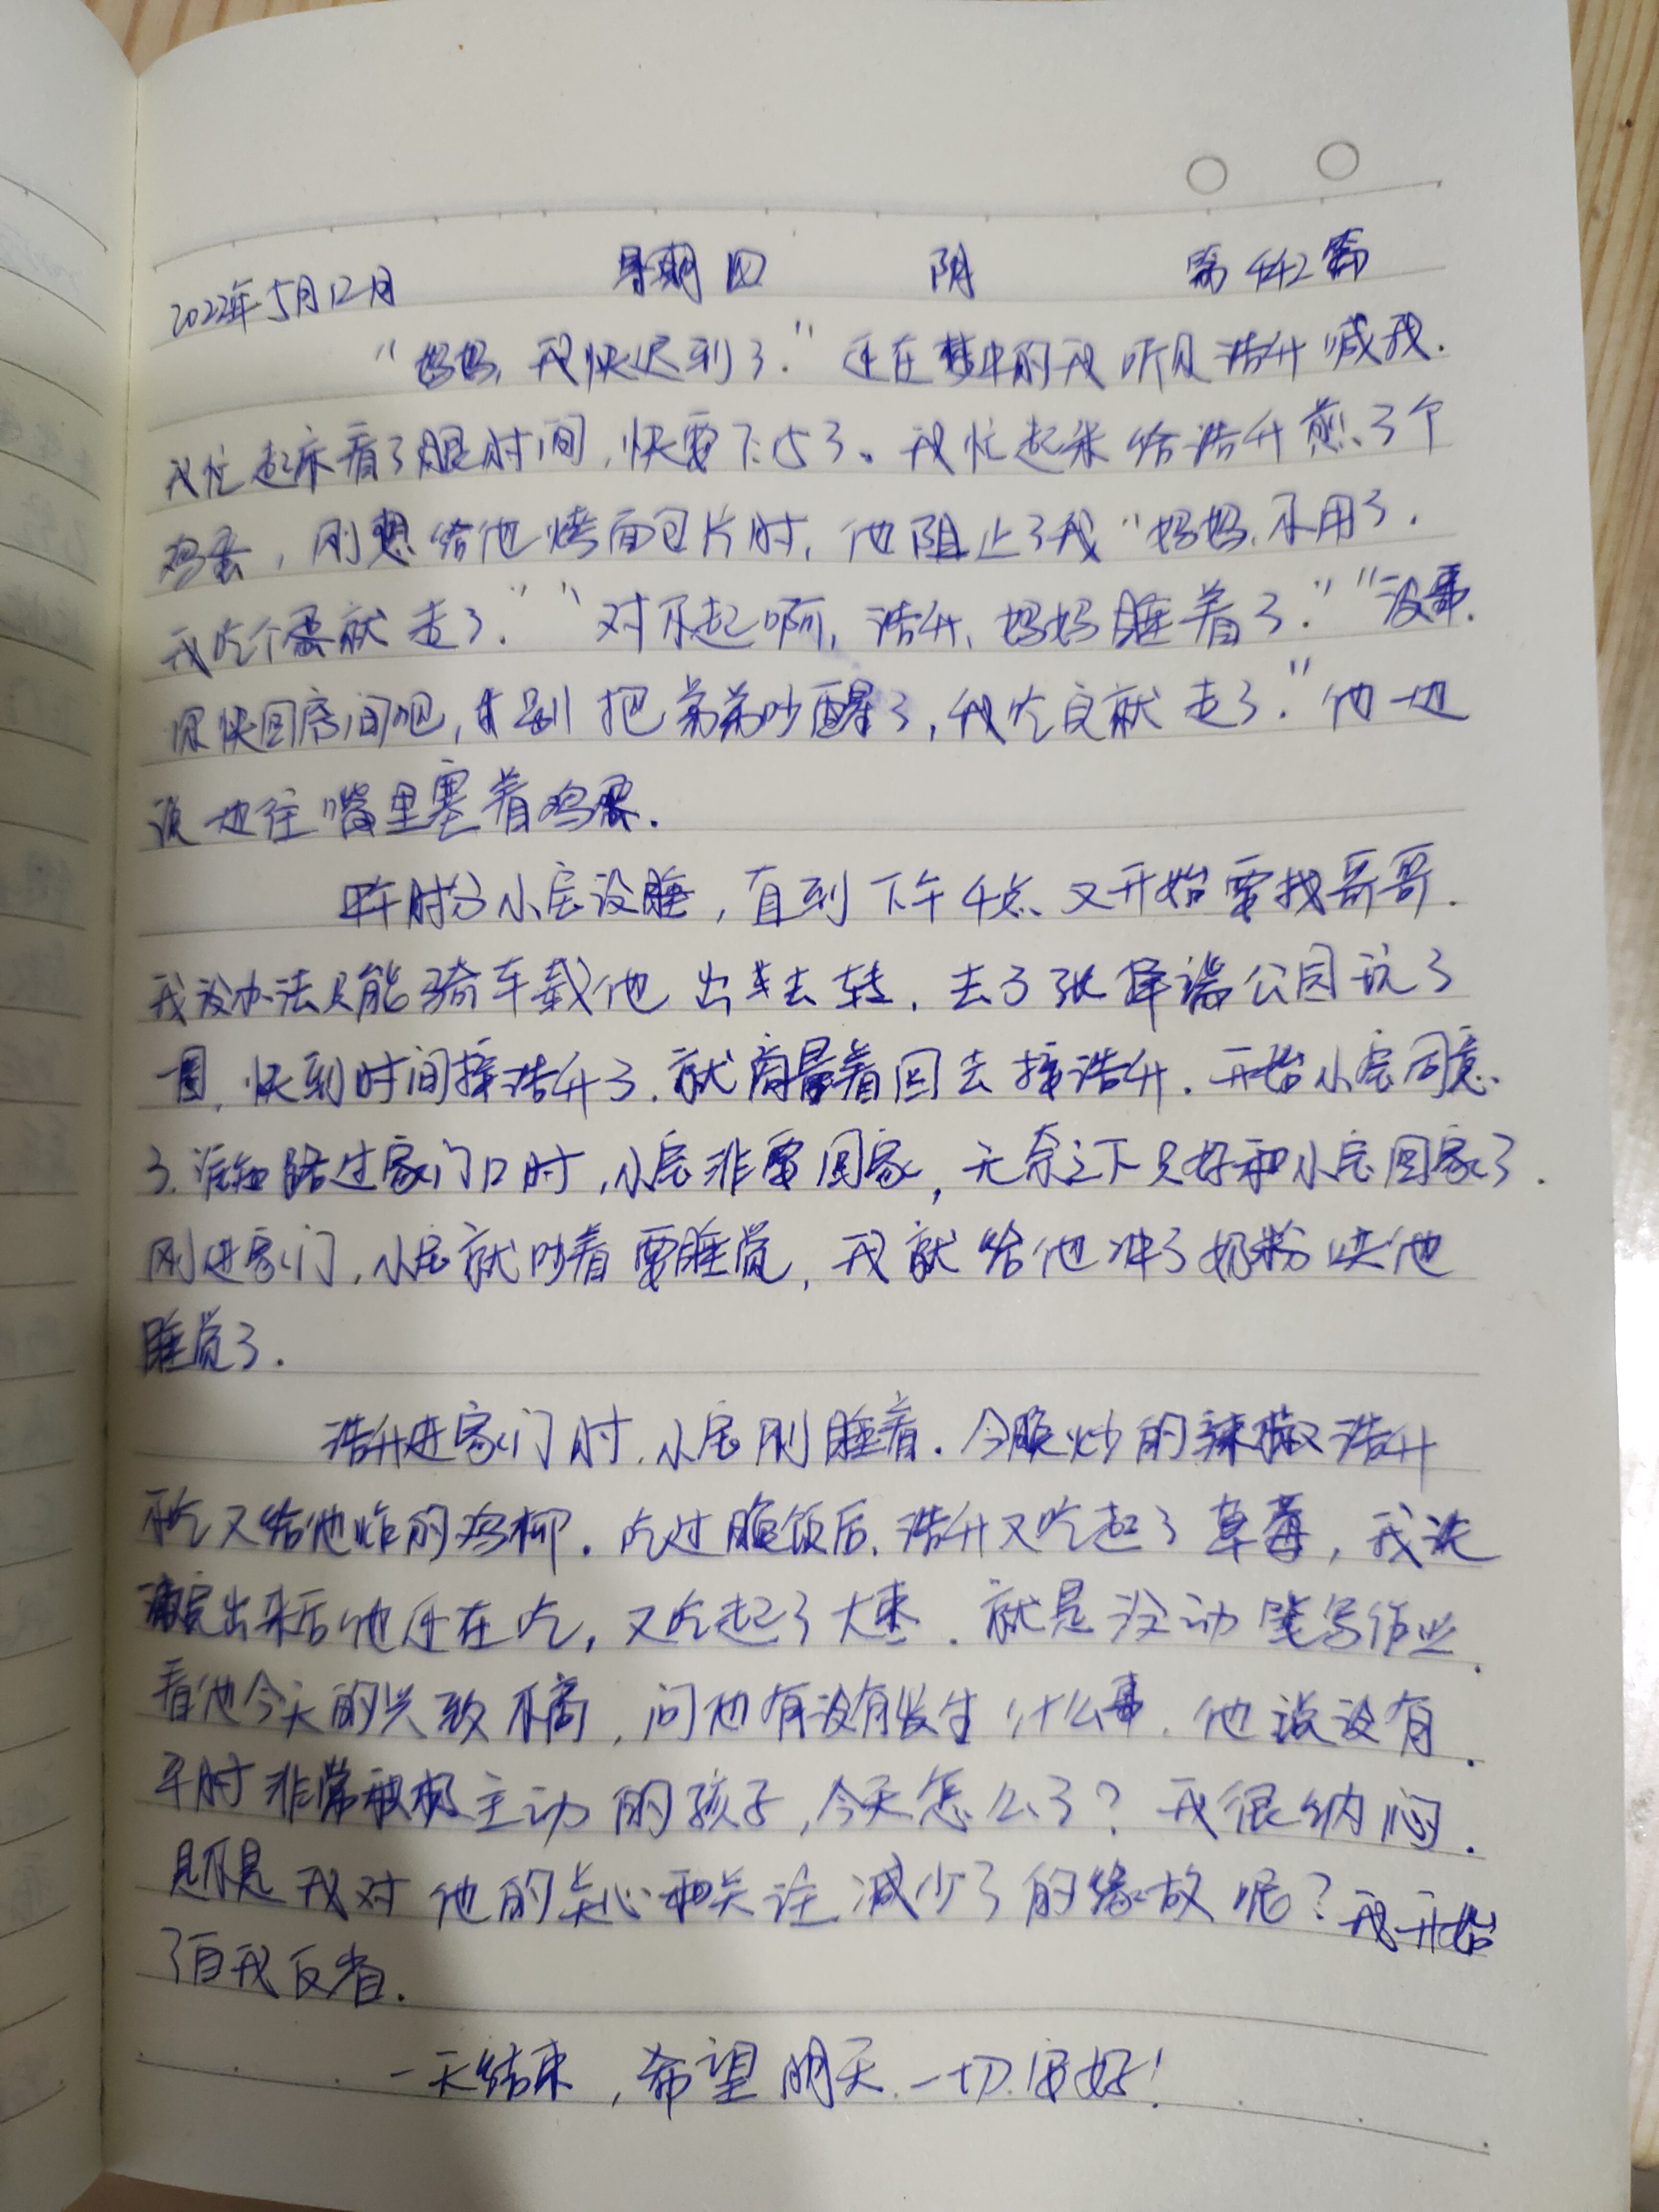 2022年5月12日 星期四 阴 第442篇
“妈妈,我快迟到了.”还在梦中的我听见浩升喊我.
我忙起床看了眼时间,快要7:15了。我忙起来给浩升煎了个
鸡蛋,刚想给他烤面包片时,他阻止了我“妈妈,不用了.
我吃个蛋就走了.”“对不起啊,浩升,妈妈睡着了.”“没事.
你快回房间吧,别把弟弟吵醒了,我吃完就走了.”他一边
说一边往嘴里塞着鸡蛋.
中午时分小宝没睡,直到下午4点又开始要找哥哥.
我没办法只能骑车载他出去转,去了张择端公园玩了
一圈,快到时间接浩升了.就商量着回去接浩升.开始小宝同意
了.谁知路过家门口时,小宝非要回家,无奈之下只好和小宝回家了.
刚进家门,小宝就吵着要睡觉,我就给他冲了奶粉哄他
睡觉了.
浩升进家门时,小宝刚睡着.今晚炒的辣椒浩升
不吃又给他炸的鸡柳.吃过晚饭后,浩升又吃起了草莓,我洗
完出来后他还在吃,又吃起了大枣.就是没动笔写作业.
看他今天的兴致不高,问他有没有发生什么事.他说没有.
平时非常积极主动的孩子,今天怎么了?我很纳闷.
是不是我对他的关心和关注减少了的缘故呢?我开始
了自我反省.
一天结束,希望明天一切安好!